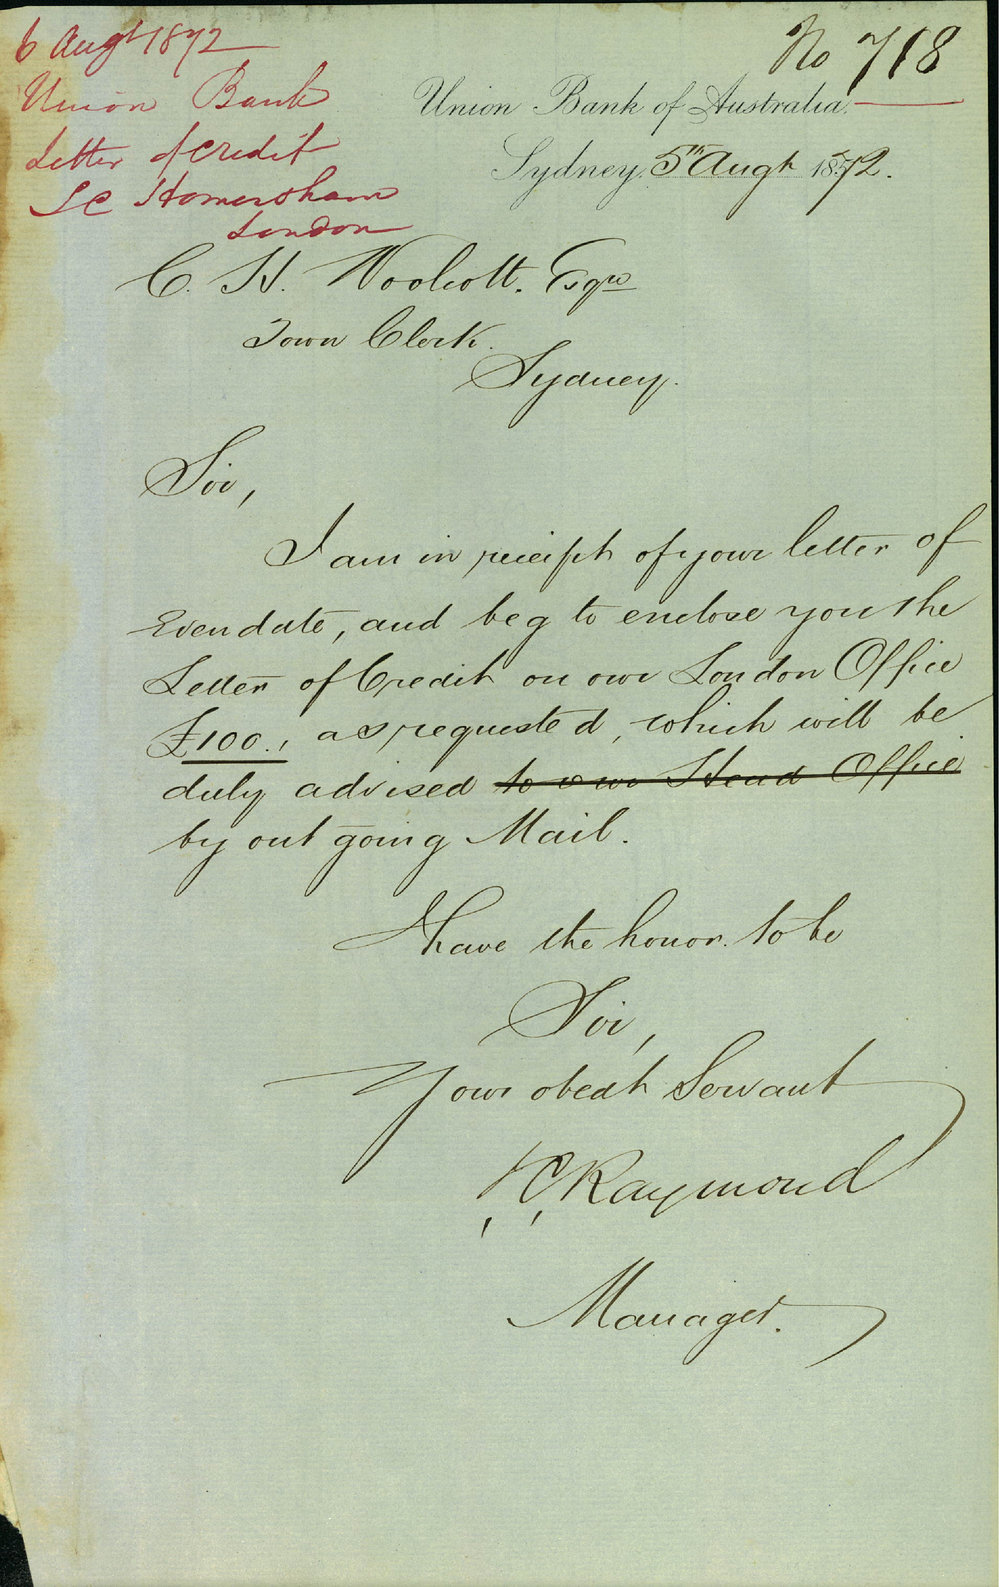 6 Augt 1872
Union Bank
Letter of Credit
SC Homersham
London
No 718
Union Bank of Australia.
Sydney, 5th Augt 1872.
C. H. Woolcott. Esqre
Town Clerk.
Sydney.
Sir,
I am in receipt of your letter of
Even date, and beg to enclose you the
Letter of Credit on our London Office
£100., as requested, which will be
duly advised to our Head Office
by out going Mail.
I have the honor. to be
Sir,
Your obedt Servant
Raymond
Manager.